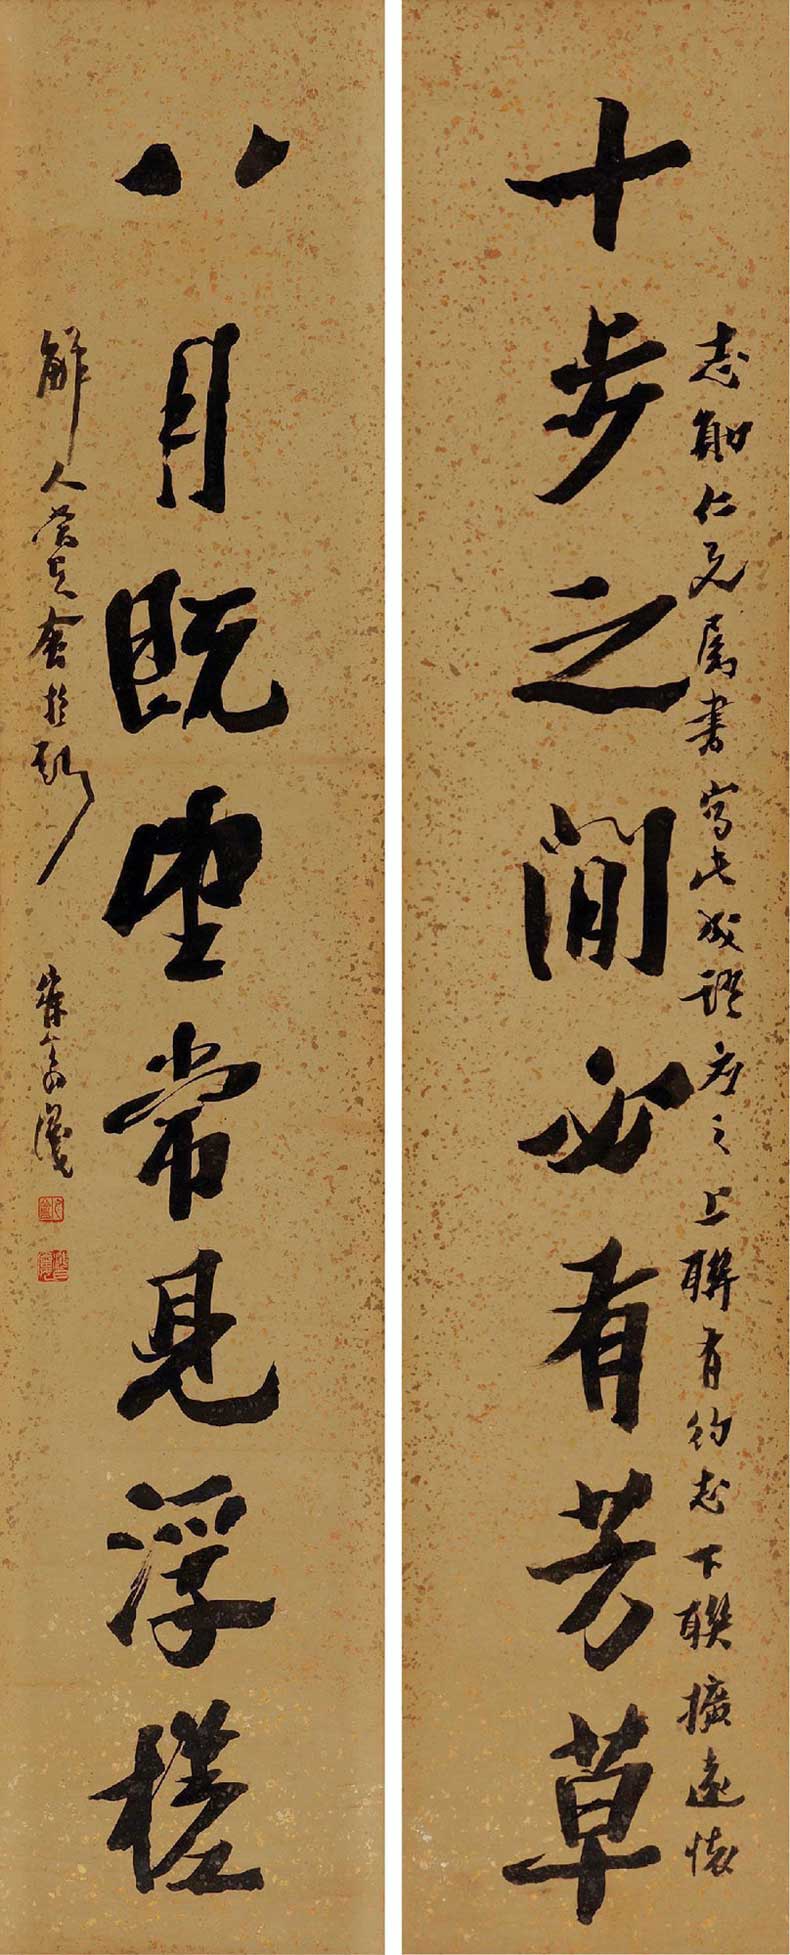 十步之間必有芳草
志勛仁兄屬書寫此成語應之上聯有約志下聯擴遠懷
八月既望常見浮槎
解人當是會於斯